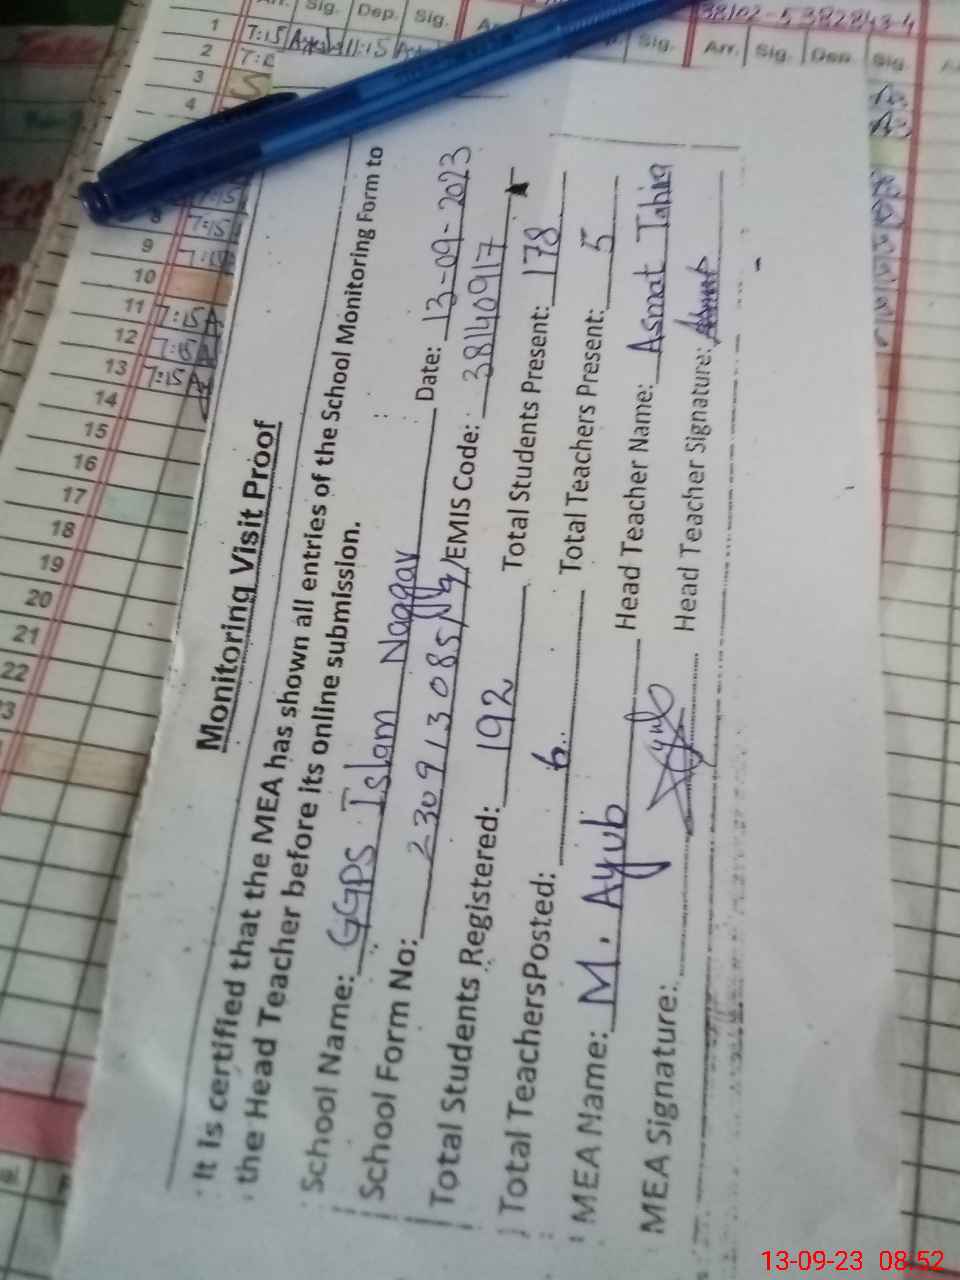 Monitoring Visit Proof
It Is certified that the MEA has shown all entries of the School Monitoring Form to
the Head Teacher before its online submission.
School Name: GGPS Islam Naggar Date: 13-09-2023
School Form No: 230913085 /EMIS Code: 38140917
Total Students Registered: 192 Total Students Present: 178
Total TeachersPosted: 6 Total Teachers Present: 5
MEA Name: M. Ayub Head Teacher Name: Asmat Tahira
MEA Signature: Ayub Head Teacher Signature: Asmat
Sig. Dep. Sig.
Sig. Arr. Sig. Dep. Sig.
38102-5382843-4
1 7:15 11:15
2
3
4
7:15
9
10
11 7:15
12 7:15
13 7:15
14
15
16
17
18
19
20
21
22
13-09-23 08:52